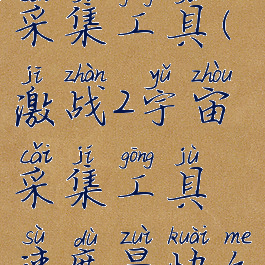 采集工具(
jī zhàn yǔ zhòu
激战2宇宙
cǎi jí gōng jù
采集工具
sù dù zuì kuài me
速度最快么